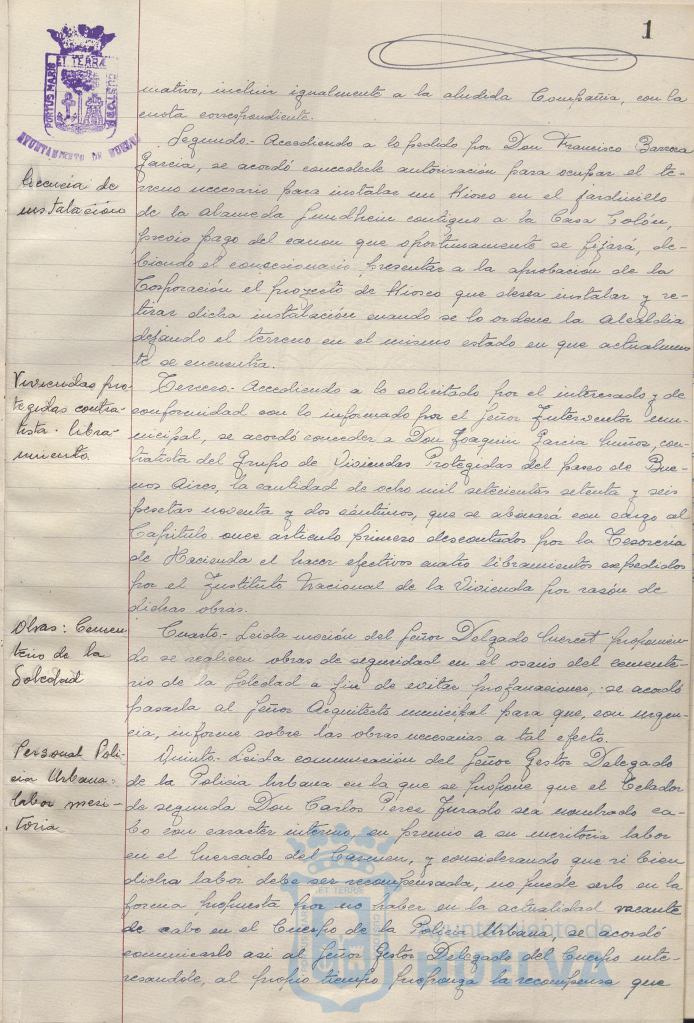 1
PORTUS MARIS
ET TERRÆ
CUSTODIA
AYUNTAMIENTO DE HUELVA
mativo, incluir igualmente a la aludida Compañia, con la
cuota correspondiente.
Licencia de
instalación
Segundo.- Accediendo a lo pedido por Don Francisco Barrera
Garcia, se acordó concederle autorización para ocupar el te-
rreno necesario para instalar un Kiosco en el jardinillo
de la Alameda Sundheim contiguo a la Casa Colón,
previo pago del canon que oportunamente se fijará, de-
biendo el concesionario presentar a la aprobación de la
Corporación el proyecto de Kiosco que desea instalar y re-
tirar dicha instalación cuando se lo ordene la Alcaldia
dejando el terreno en el mismo estado en que actualmen-
te se encuentra.
Viviendas pro-
tegidas contra-
tista. libra-
miento.
Tercero.- Accediendo a lo solicitado por el interesado y de
conformidad con lo informado por el Señor Interventor mu-
nicipal, se acordó conceder a Don Joaquin Garcia Muñoz, con-
tratista del Grupo de Viviendas Protegidas del paseo de Bue-
nos Aires, la cantidad de ocho mil setecientas setenta y seis
pesetas noventa y dos céntimos, que se abonará con cargo al
Capitulo once articulo primero descontados por la Tesorería
de Hacienda el hacer efectivos cuatro libramientos expedidos
por el Instituto Nacional de la Vivienda por razón de
dichas obras.
Obras: Cemen-
terio de la
Soledad
Cuarto.- Leida moción del Señor Delgado proponien-
do se realicen obras de seguridad en el osario del cemente-
rio de la Soledad a fin de evitar profanaciones, se acordó
pasarla al Señor Arquitecto municipal para que, con urgen-
cia, informe sobre las obras necesarias a tal efecto.
Personal Poli-
cia Urbana:
labor meri-
toria
Quinto.- Leida comunicación del Señor Gestor Delegado
de la Policia Urbana en la que se propone que el Celador
de segunda Don Carlos Perez Jurado sea nombrado ca-
bo con caracter interino, en premio a su meritoria labor
en el Mercado del Carmen, y considerando que si bien
dicha labor debe ser recompensada, no puede serlo en la
forma propuesta por no haber en la actualidad vacante
de cabo en el Cuerpo de la Policia Urbana, se acordó
comunicarlo asi al Señor Gestor Delegado del Cuerpo inte-
resandole, al propio tiempo proponga la recompensa que
PORTUS MARIS
ET TERRA
CUSTODIA
Ayuntamiento de
HUELVA